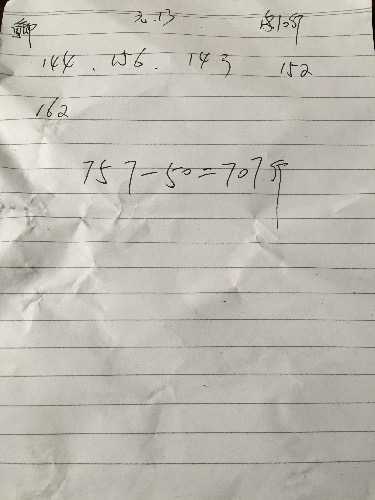 144. 156. 143 152
162
757-50=707斤